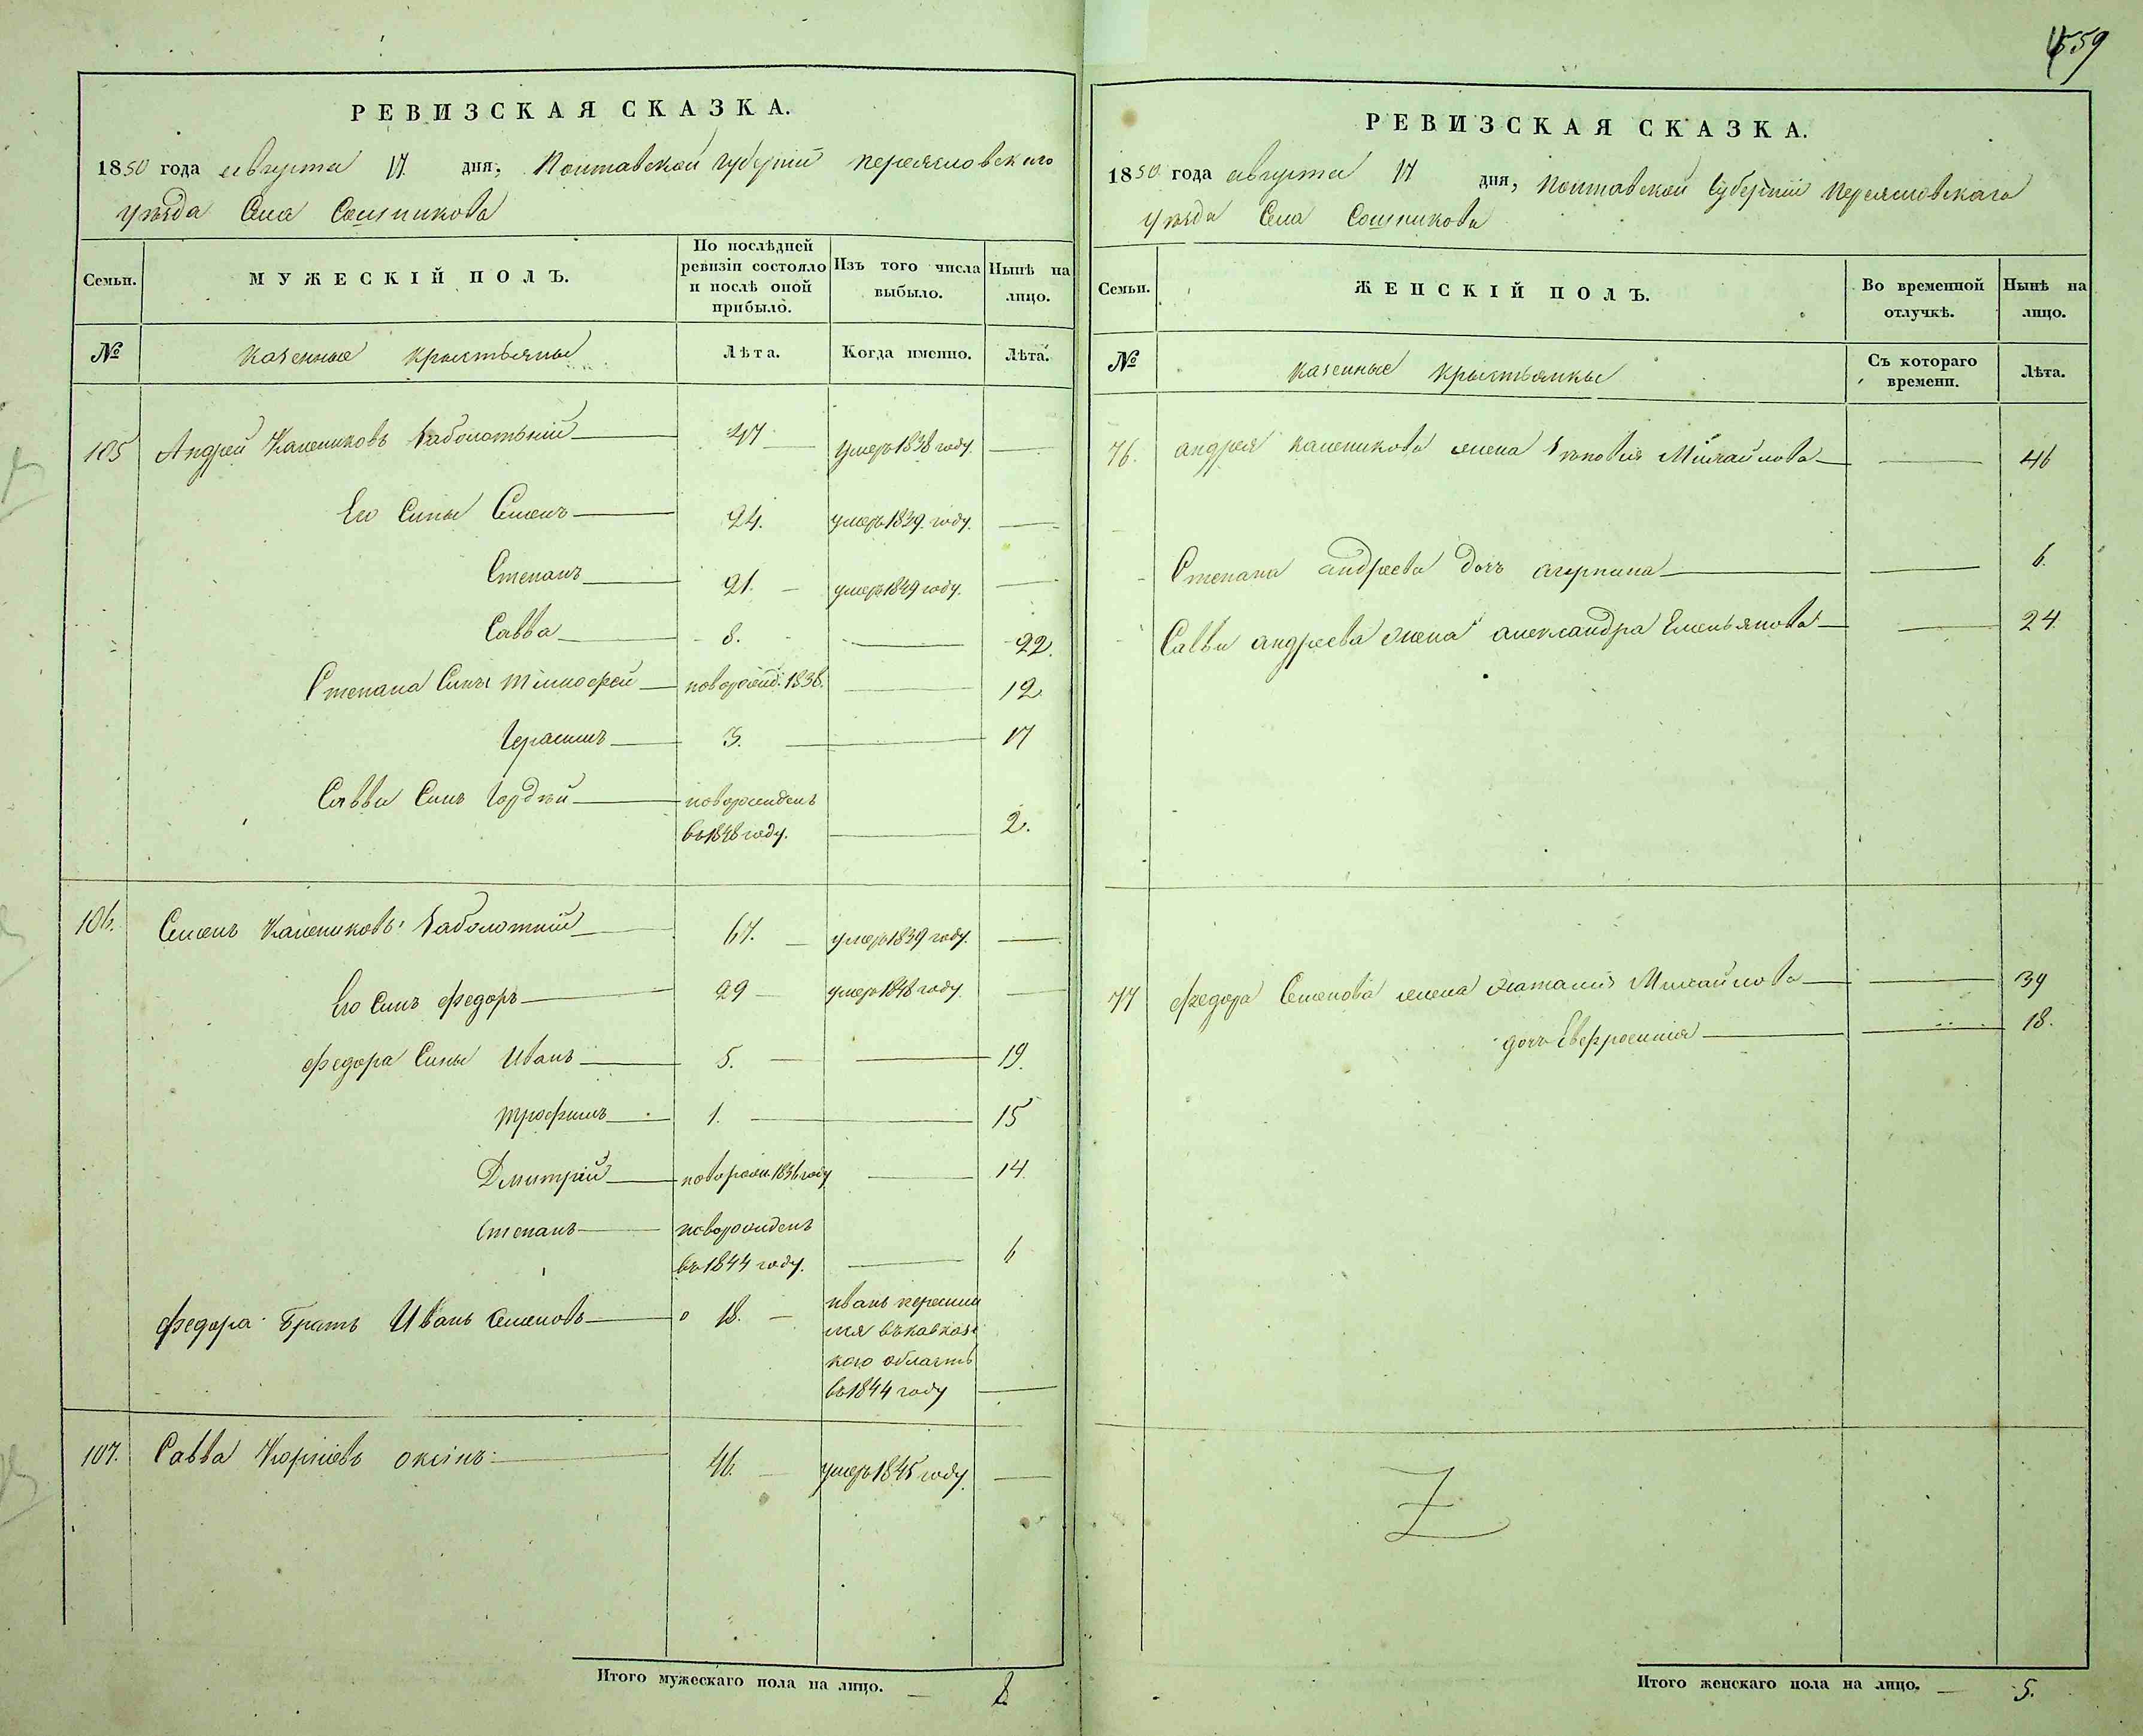 559
РЕВИЗСКАЯ СКАЗКА.
1850 года августа 17 дня, Полтавской Губерніи Переясловскаго
уѣзда Села Сошникова
Семьи.
МУЖЕСКІЙ ПОЛЪ.
По послѣдней ревизіи состояло и послѣ оной прибыло.
Изъ того числа выбыло.
Нынѣ на лицо.
№
Казенные крыстьяны
Лѣта.
Когда именно.
Лѣта.
105 Андрей Калениковъ Заболотьній 47 умеръ 1838 году.
Его Сины Семенъ 24. умеръ 1839. году.
Степанъ 21. умеръ 1849 году.
Савва 8. 22.
Степана Сины Тимофей новорожд. 1838. 12.
Герасимъ 3. 17
Саввы Синъ Гордѣй новорожденъ
въ 1848 году. 2.
106. Семенъ Калениковъ Заболотній 67. умеръ 1839 году.
Его Синъ Федоръ 29 умеръ 1848 году.
Федора Сины Иванъ 5. 19.
Трофимъ 1. 15
Дмитрій новорож. 1836 году 14.
Степанъ новорожденъ
въ 1844 году. 6
Федора Братъ Иванъ Семеновъ 18. иванъ
въ кавказ
кою область
въ 1844 году
107. Савва Корніевъ 46. умеръ 1845 году.
Итого мужескаго пола на лицо.
РЕВИЗСКАЯ СКАЗКА.
1850 года августа 17 дня, Полтавской Губерніи Переясловскаго
уѣзда Села Сошникова
Семьи.
ЖЕНСКІЙ ПОЛЪ.
Во временной отлучкѣ.
Нынѣ на лицо.
№
казенные крыстьянкы
Съ котораго времени.
Лѣта.
76. андрея каленикова жена Зѣновія Михайлова 46
Степана андреева дочъ агрипина 6.
Савы андреева жена александра Емельянова 24.
77 Федора Семенова жена Наталія Михайлова 39
дочъ Евфросинія 18.
Итого женскаго пола на лицо. 5.